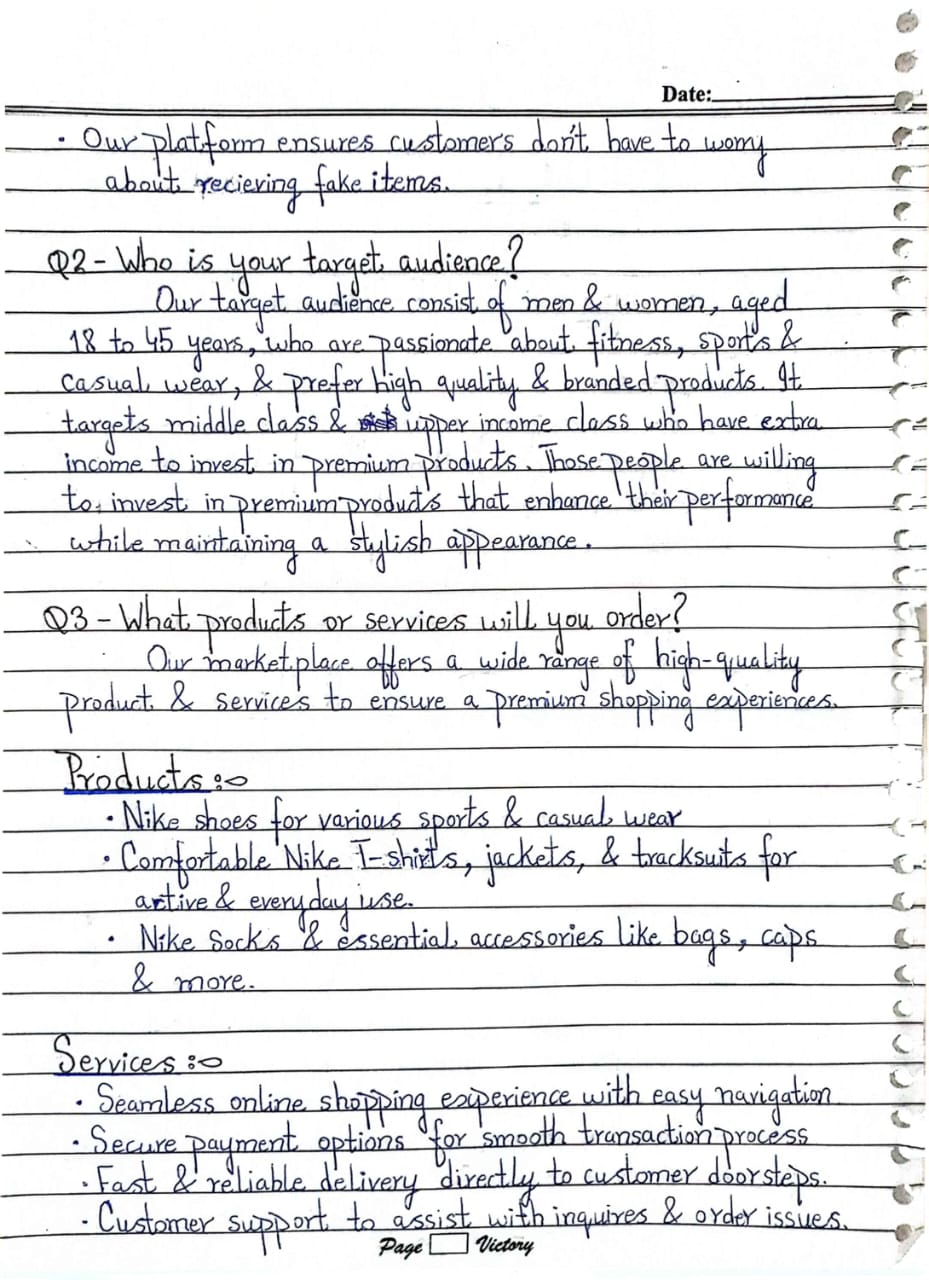 Date:
• Our platform ensures customers don't have to worry
about recieving fake items.
Q2 - Who is your target audience?
Our target audience consist of men & women, aged
18 to 45 years, who are passionate about fitness, sports &
casual wear, & prefer high quality & branded products. It
targets middle class & upper income class who have extra
income to invest in premium products. Those people are willing
to invest in premium products that enhance their performance
while maintaining a stylish appearance.
Q3 - What products or services will you order?
Our marketplace offers a wide range of high-quality
product & services to ensure a premium shopping experiences.
Products :-
• Nike shoes for various sports & casual wear
• Comfortable Nike T-shirts, jackets, & tracksuits for
active & everyday use.
• Nike Socks & essential accessories like bags, caps
& more.
Services :-
• Seamless online shopping experience with easy navigation
• Secure payment options for smooth transaction process
• Fast & reliable delivery directly to customer doorsteps.
• Customer support to assist with inquires & order issues.
Page Victory